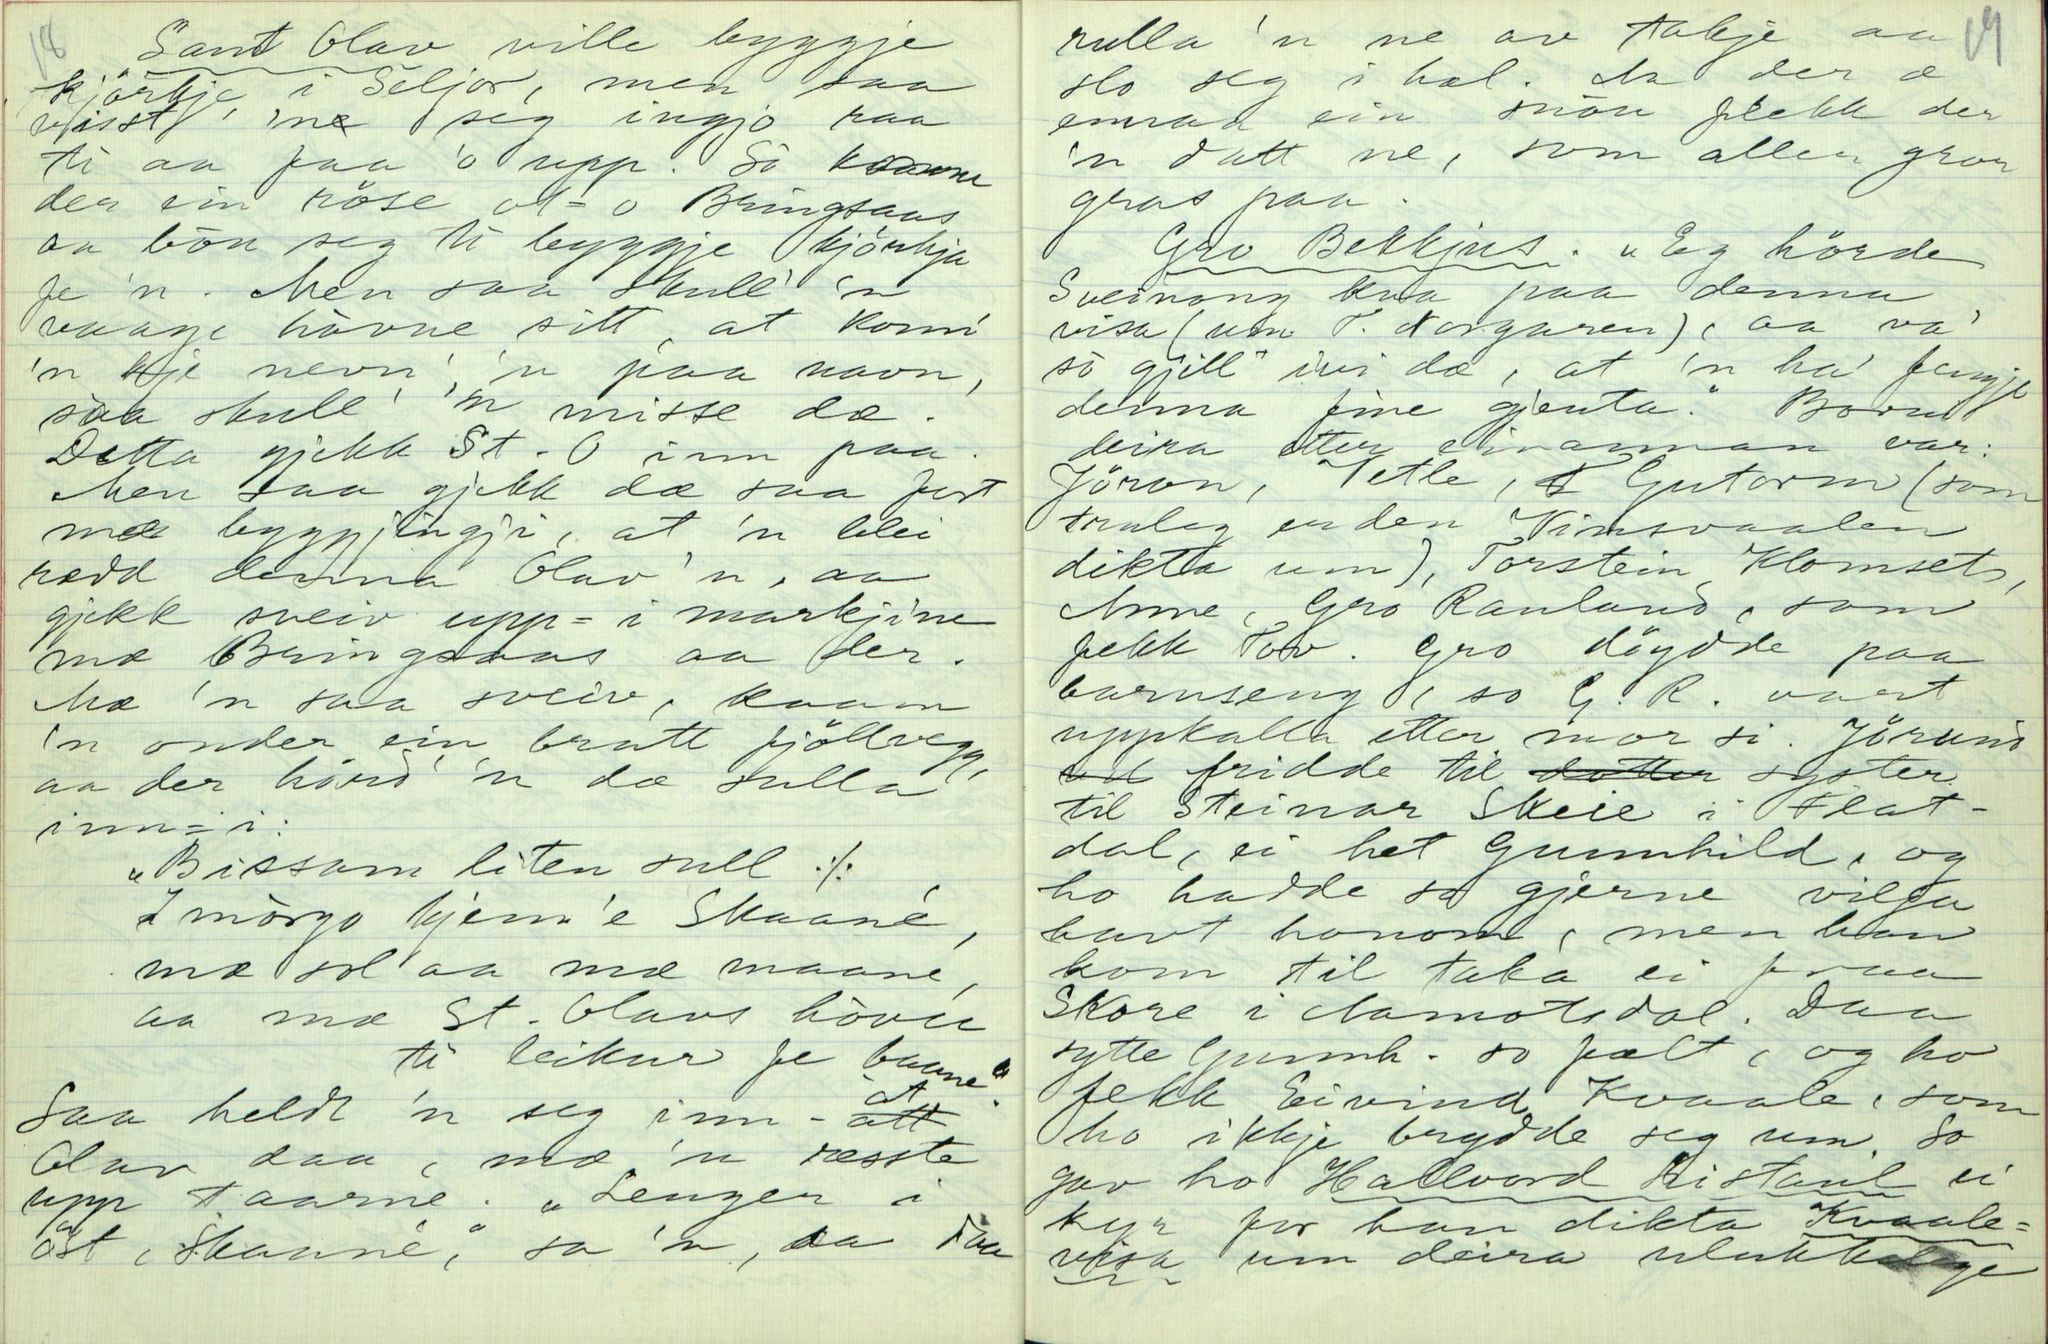 18
Sant Olav ville byggje
kjörkje i Seljor, men saa
visst 'n seg ingjo raa
ti aa faa 'o upp. Sò kaam
der ein röse ut-o Bringsaas
aa bòu seg ti byggje kjörkja
fe 'n. Men saa skull' 'n
vaage hòvue sitt, at kom'
'n kje nevn' 'n paa navn,
saa skull' 'n misse dæ.
Detta gjekk St. O inn paa.
Men saa gjekk dæ saa fort
mæ byggjingji, at 'n blei
rædd denna Olav'n, aa
gjekk sveiv upp-i markjine
mæ Bringsaas aa der.
Mæ 'n saa sveiv, kaam
'n onder ein bratt fjöllvegg,
aa der hörd' 'n dæ sulla
inn-i:
"Bissam liten sull ./.
I mòrgo kjem'e Skaané,
mæ sol aa mæ maané,
aa mæ St. Olavs hòvu
ti leikur fe baane".
Saa heldt 'n seg inn-att at
Olav daa, mæ 'n ræsste
upp taarne. "Lenger i
öst, Skaané," sa 'n, aa daa
19
rulla 'n ne av takje aa
slo seg i hæl. Aa der æ
enraa ein snöu flekk der
'n datt ne, som aller gror
gras paa.
Gro Bekkjus. "Eg hörde
Sveinung kva paa denna
visa (um T. Norgaren), aa va'
sò gjill ivi dæ, at 'n ha' fengje
denna fine gjenta." Borni
deira etter einannan var:
Jöron, Vetle, Gutorm (som
truleg er den Vinsvaalen
dikta um), Torstein Klomset,
Anne, Gro Rauland, som
fekk Tov. Gro döydde paa
barnseng, so G. R. vart
uppkalla etter mor si. Jörund
fridde til dotter syster
til Steinar Skeie i Flat-
dal, ei het Gunnhild, og
ho hadde so gjerne vilja
havt honom, men han
kom til taka ei fraa
Skore i Aamotsdal. Daa
sytte Gunnh. so fælt, og ho
fekk Eivind Kvaale, som
ho ikkje brydde seg um. So
gav ho Hallvord Ristaul ei
kyr for han dikta Kvaale-
visa um deira ulukkelege